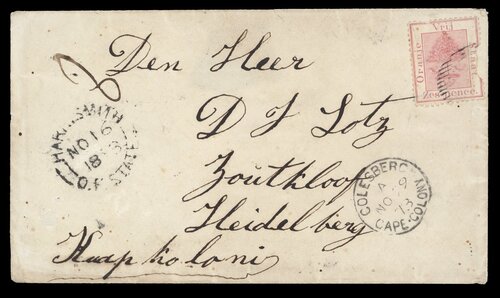 8
Den Heer
D J Lotz
Zoutkloof
Heidelberg
Kaapkoloni
Oranje Vrij Staat
Zes Pence.
HARRISMITH
NO 16
O.F. STATE
COLESBERG
NO
CAPE·COLONY